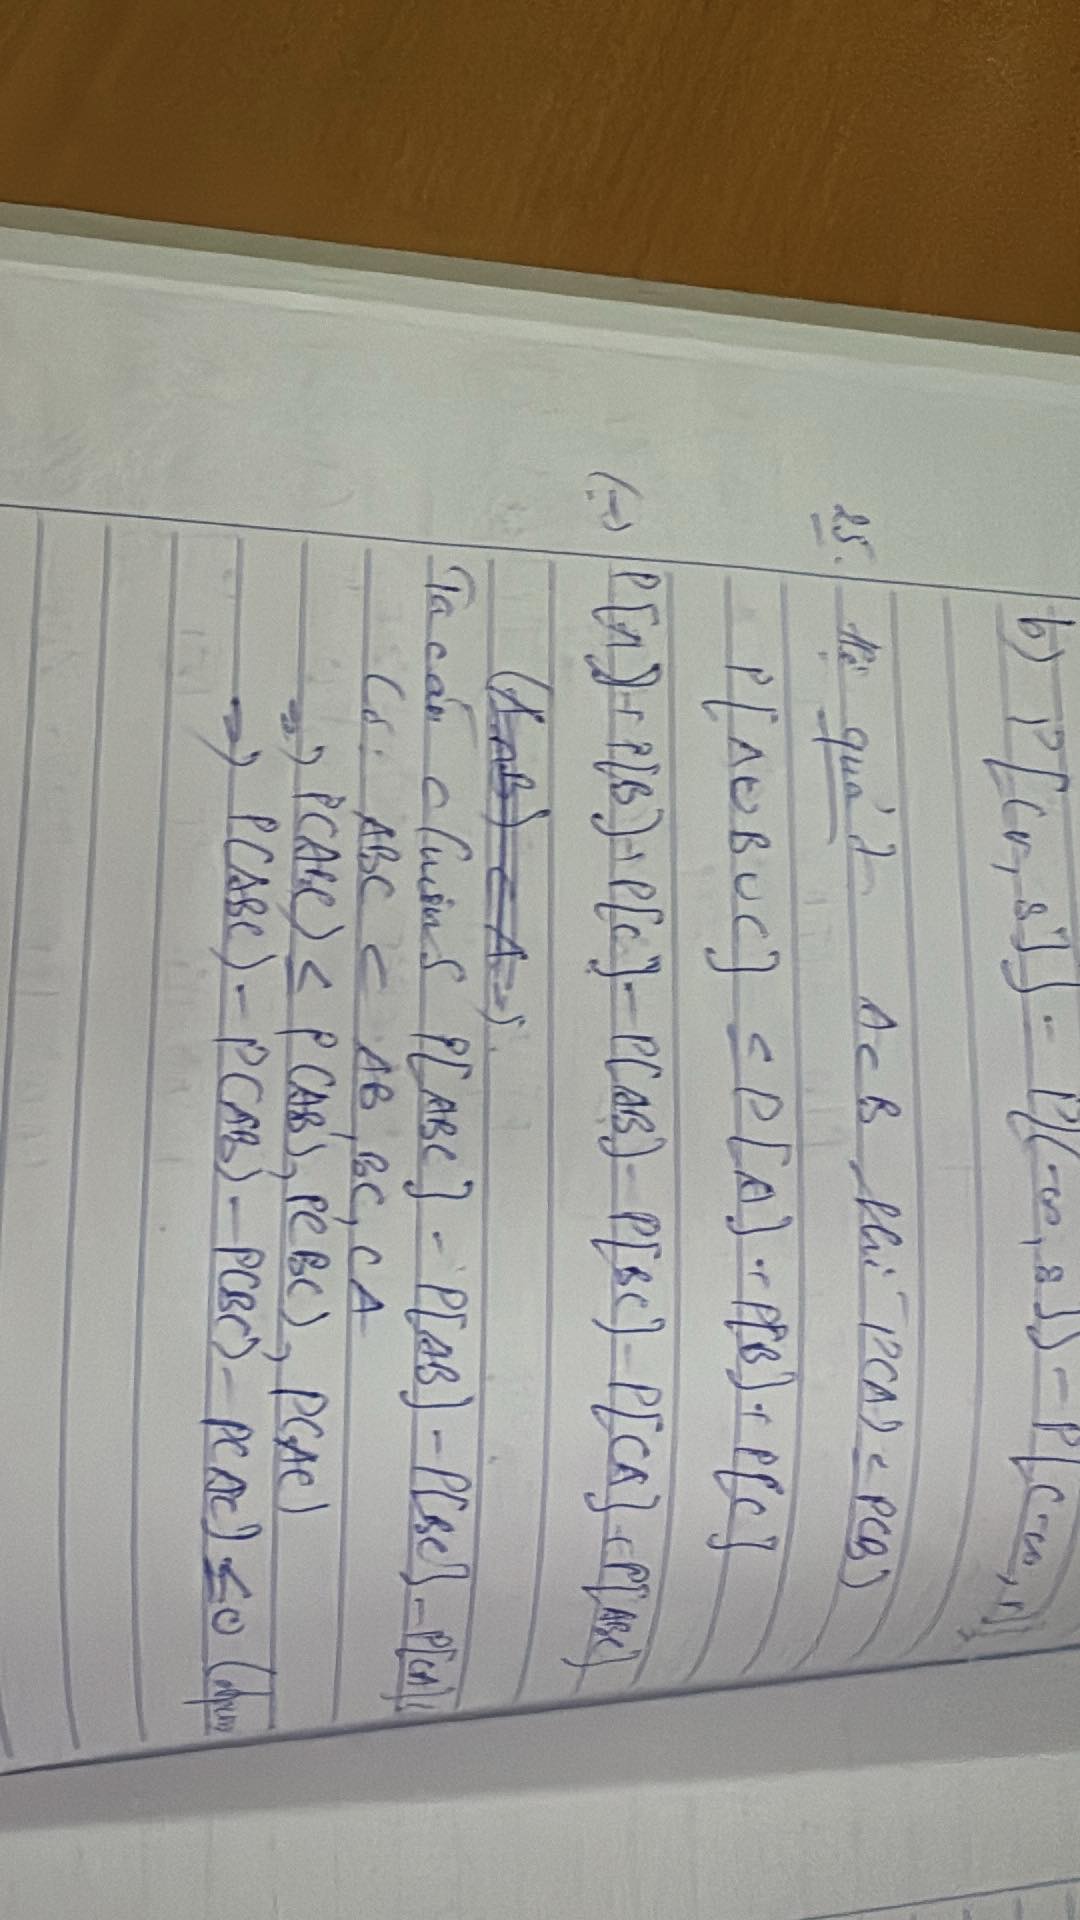 b) P[(r, s]] = P(-∞, s]) - P[(-∞, r]]
25. Hệ quả 2 A ⊂ B thì P(A) ≤ P(B)
P[A ∪ B ∪ C] ≤ P[A] + P[B] + P[C]
(→) P[A] + P[B] + P[C] - P[AB] - P[BC] - P[CA] + P[ABC]
Ta cần chứng P[ABC] - P[AB] - P[BC] - P[CA]
Có: ABC ⊂ AB, BC, CA
→ P(ABC) ≤ P(AB), P(BC), P(AC)
→ P(ABC) - P(AB) - P(BC) - P(AC) ≤ 0 (đpcm